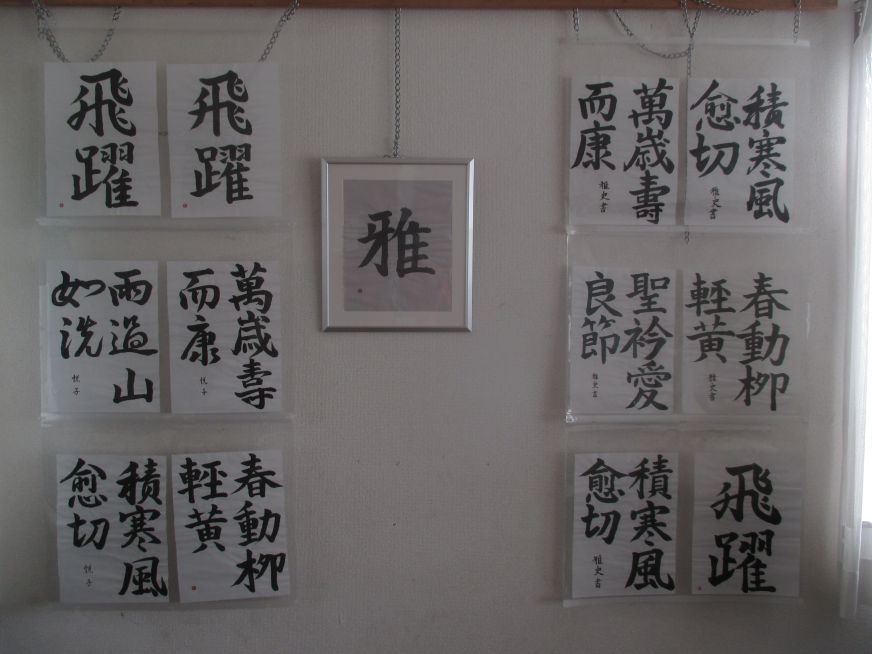 飛躍
飛躍
雨過山
如洗
悦子
萬歳壽
而康
悦子
積寒風
愈切
悦子
春動柳
軽黄
雅
萬歳壽
而康
雅史書
積寒風
愈切
雅史書
聖衿愛
良節
雅史書
春動柳
軽黄
雅史書
積寒風
愈切
雅史書
飛躍